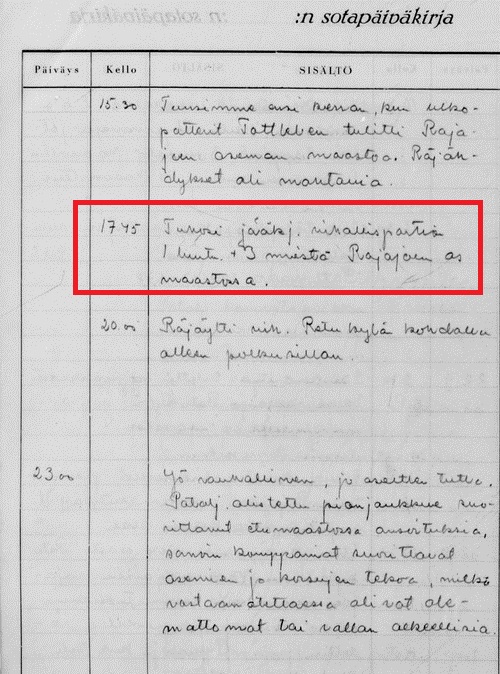 :n sotapäiväkirja
Päiväys Kello SISÄLTÖ
15.30 Tunsimme ensi kerran, kun ulko-
patterit Tottleben tulitti Raja-
joen aseman maastoa. Räjäh-
dykset oli mahtavia.
1745 Tuhosi jääkj. vihollispartio
1 luutn. + 3 miestä Rajajoen as
maastossa.
20.00 Räjäytti vih. kylä kohdalla
olleen polkusillan.
23.00 Yö rauhallinen, jo asetettu
Patalj. alistettu pionjoukkue suo-
rittanut etumaastossa ansoituksia,
samoin komppaniat suorittavat
asemien ja korsujen tekoa, mitkä
vastaan otettaessa olivat ole-
mattomat tai vallan alkeellisia.